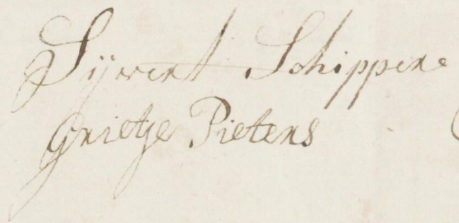 Sijwert Schipper
Grietje Pieters